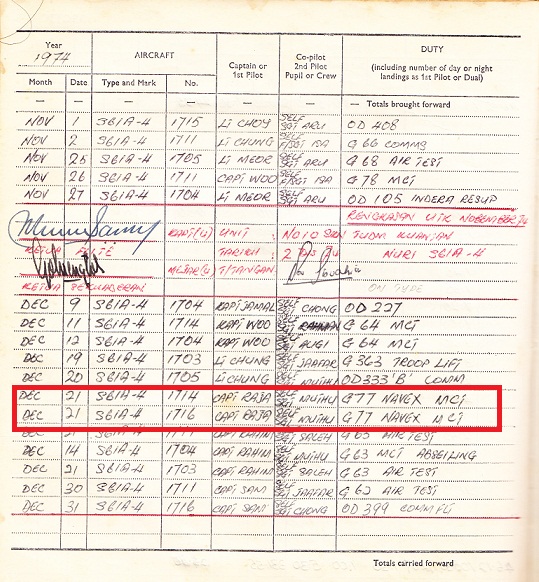 Year
1974
AIRCRAFT
Captain or
1st Pilot
Co-pilot
2nd Pilot
Pupil or Crew
DUTY
(including number of day or night
landings as 1st Pilot or Dual)
Month Date Type and Mark No.
— — — — — — — Totals brought forward
NOV 1 S61A-4 1715 Lt CHOY SELF SGT ARU OD 408
NOV 2 S61A-4 1711 Lt CHUNG SELF F/SGT ISA G 66 COMMS
NOV 25 S61A-4 1705 Lt MEOR SELF SGT ARU G 68 AIR TEST
NOV 26 S61A-4 1711 CAPT WOO SELF ISA G 78 MCT
NOV 27 S61A-4 1704 Lt MEOR SELF SGT ARU OD 105 INDERA RESUP
RENGKASAN UTK NOBEMBER 74
KAPT(U) UNIT : NO 10 SKN TUDM KUANTAN
TARIKH : 2 NURI S61A-4
MEJAR(U) T/TANGAN :
KETUA SEKUADERAN ON TYPE
DEC 9 S61A-4 1704 KAPT JAMAL SELF CHONG OD 227
DEC 11 S61A-4 1714 KAPT WOO SELF G 64 MCT
DEC 12 S61A-4 1704 KAPT WOO SELF AUGI G 64 MCT
DEC 19 S61A-4 1703 Lt CHUNG SELF JAAFAR G 363 TROOP LIFT
DEC 20 S61A-4 1705 Lt CHUNG SELF MUTHU OD333 'B' COMM
DEC 21 S61A-4 1714 CAPT RAJA SELF MUTHU G77 NAVEX MCT
DEC 21 S61A-4 1716 CAPT RAJA SELF MUTHU G77 NAVEX MCT
1711 CAPT RAHIM SALEH G 63 AIR TEST
DEC 14 S61A-4 1704 CAPT RAHIM SELF MUTHU G 63 MCT ABSEILING
DEC 21 S61A-4 1703 CAPT RAHIM SELF SALEH G 63 AIR TEST
DEC 30 S61A-4 1711 CAPT SAM SELF JAAFAR G 62 AIR TEST
DEC 31 S61A-4 1716 CAPT SAM SELF SGT CHONG OD 399 COMM FLT
Totals carried forward